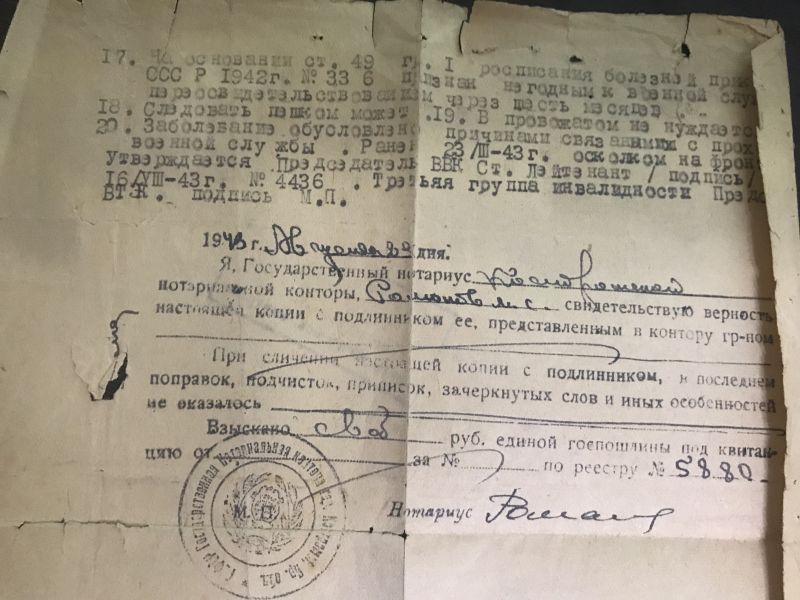 17. На основании ст. 49 гр. I росписания болезней прик
СССР 1942г. № 336 признан негодным к военной служ
переосвидетельствованием через шесть месяцев.
18. Следовать пешком может .19. В провожатом не нуждаетс
20. Заболевание обусловлено причинами связанными с прох
военной службы . Ранен 23/III-43г. осколком на фрон
Утверждается Председатель ВВК Ст. Лейтенант /подпись/
16/VIII-43г. № 4436 . Третьяя группа инвалидности Предс
ВТЭК. подпись М.П.
1943 г. Августа 22 дня.
Я, Государственный нотариус
нотариальной конторы, свидетельствую верность
настоящей копии с подлинником ее, представленным в контору гр-ном
При сличении настоящей копии с подлинником, в последнем
поправок, подчисток, приписок, зачеркнутых слов и иных особенностей
не оказалось
Взыскано руб. единой госпошлины под квитан-
цию от за № по реестру № 5880
М. П.
Нотариус
Государственная Нотариальная контора